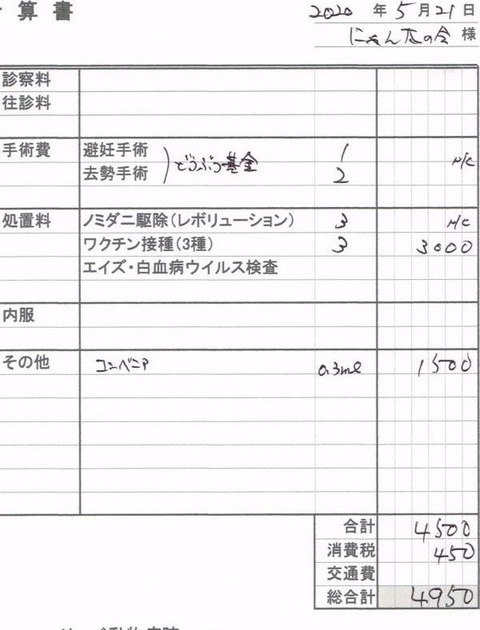 算書
2020 年 5 月 21 日
にゃん友の会 様
診察料
往診料
手術費 避妊手術 1 n/c
去勢手術 どうぶつ基金 2
処置料 ノミダニ駆除(レボリューション) 3 n/c
ワクチン接種(3種) 3 3000
エイズ・白血病ウイルス検査
内服
その他 コンベニア 0.3ml 1500
合計 4500
消費税 450
交通費
総合計 4950
動物病院